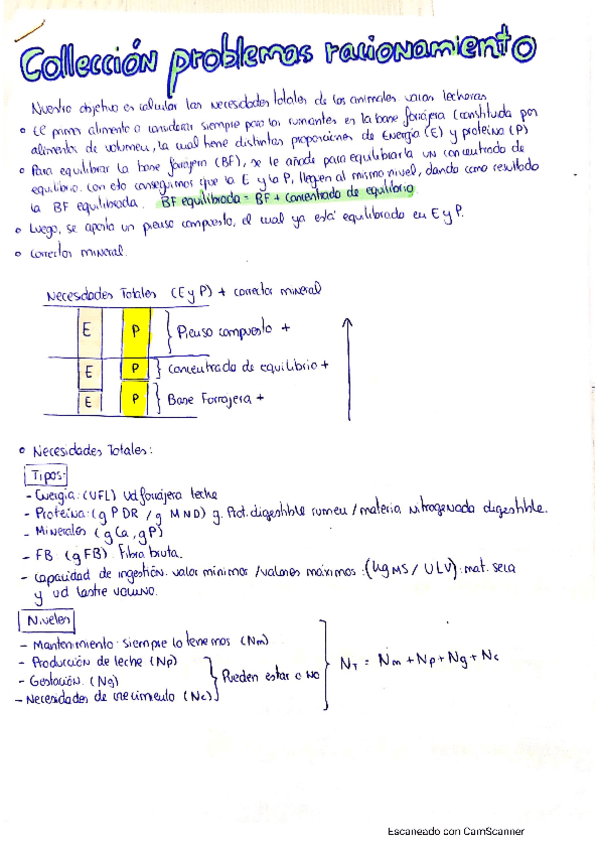 Collección problemas racionamiento
Nuestro objetivo es calcular las necesidades totales de los animales vacas lecheras
• El primer alimento a considerar siempre para los rumiantes es la base forrajera (constituida por
alimentos de volumen, la cual tiene distintas proporciones de Energía (E) y proteína (P)
• Para equilibrar la base forrajera (BF), se le añade para equilibrarla un concentrado de
equilibrio. con eto conseguimos que la E y la P, lleguen al mismo nivel, dando como resultado
la BF equilibrada. BF equilibrada = BF + concentrado de equilibrio
• Luego, se aporta un pienso compuesto, el cual ya está equilibrado en E y P.
• Corrector mineral.
Necesidades Totales (E y P) + corrector mineral
E P } Pienso compuesto +
E P } concentrado de equilibrio +
E P } Base Forrajera +
• Necesidades Totales:
Tipos:
- Energía: (UFL) Ud forrajera leche
- Proteína: (g PDR / g MND) g. Prot. digestible rumen / materia nitrogenada digestible.
- Minerales (g Ca, g P)
- FB: (g FB) Fibra bruta.
- Capacidad de ingestión. valor mínimos / valores máximos: (Kg MS / ULV): mat. seca
y ud lastre vacuno.
Niveles
- Mantenimiento: siempre lo tenemos (Nm)
- Producción de leche (Np)
- Gestación. (Ng)
- Necesidades de crecimiento (Nc)
} Pueden estar o no
NT = Nm + Np + Ng + Nc
Escaneado con CamScanner